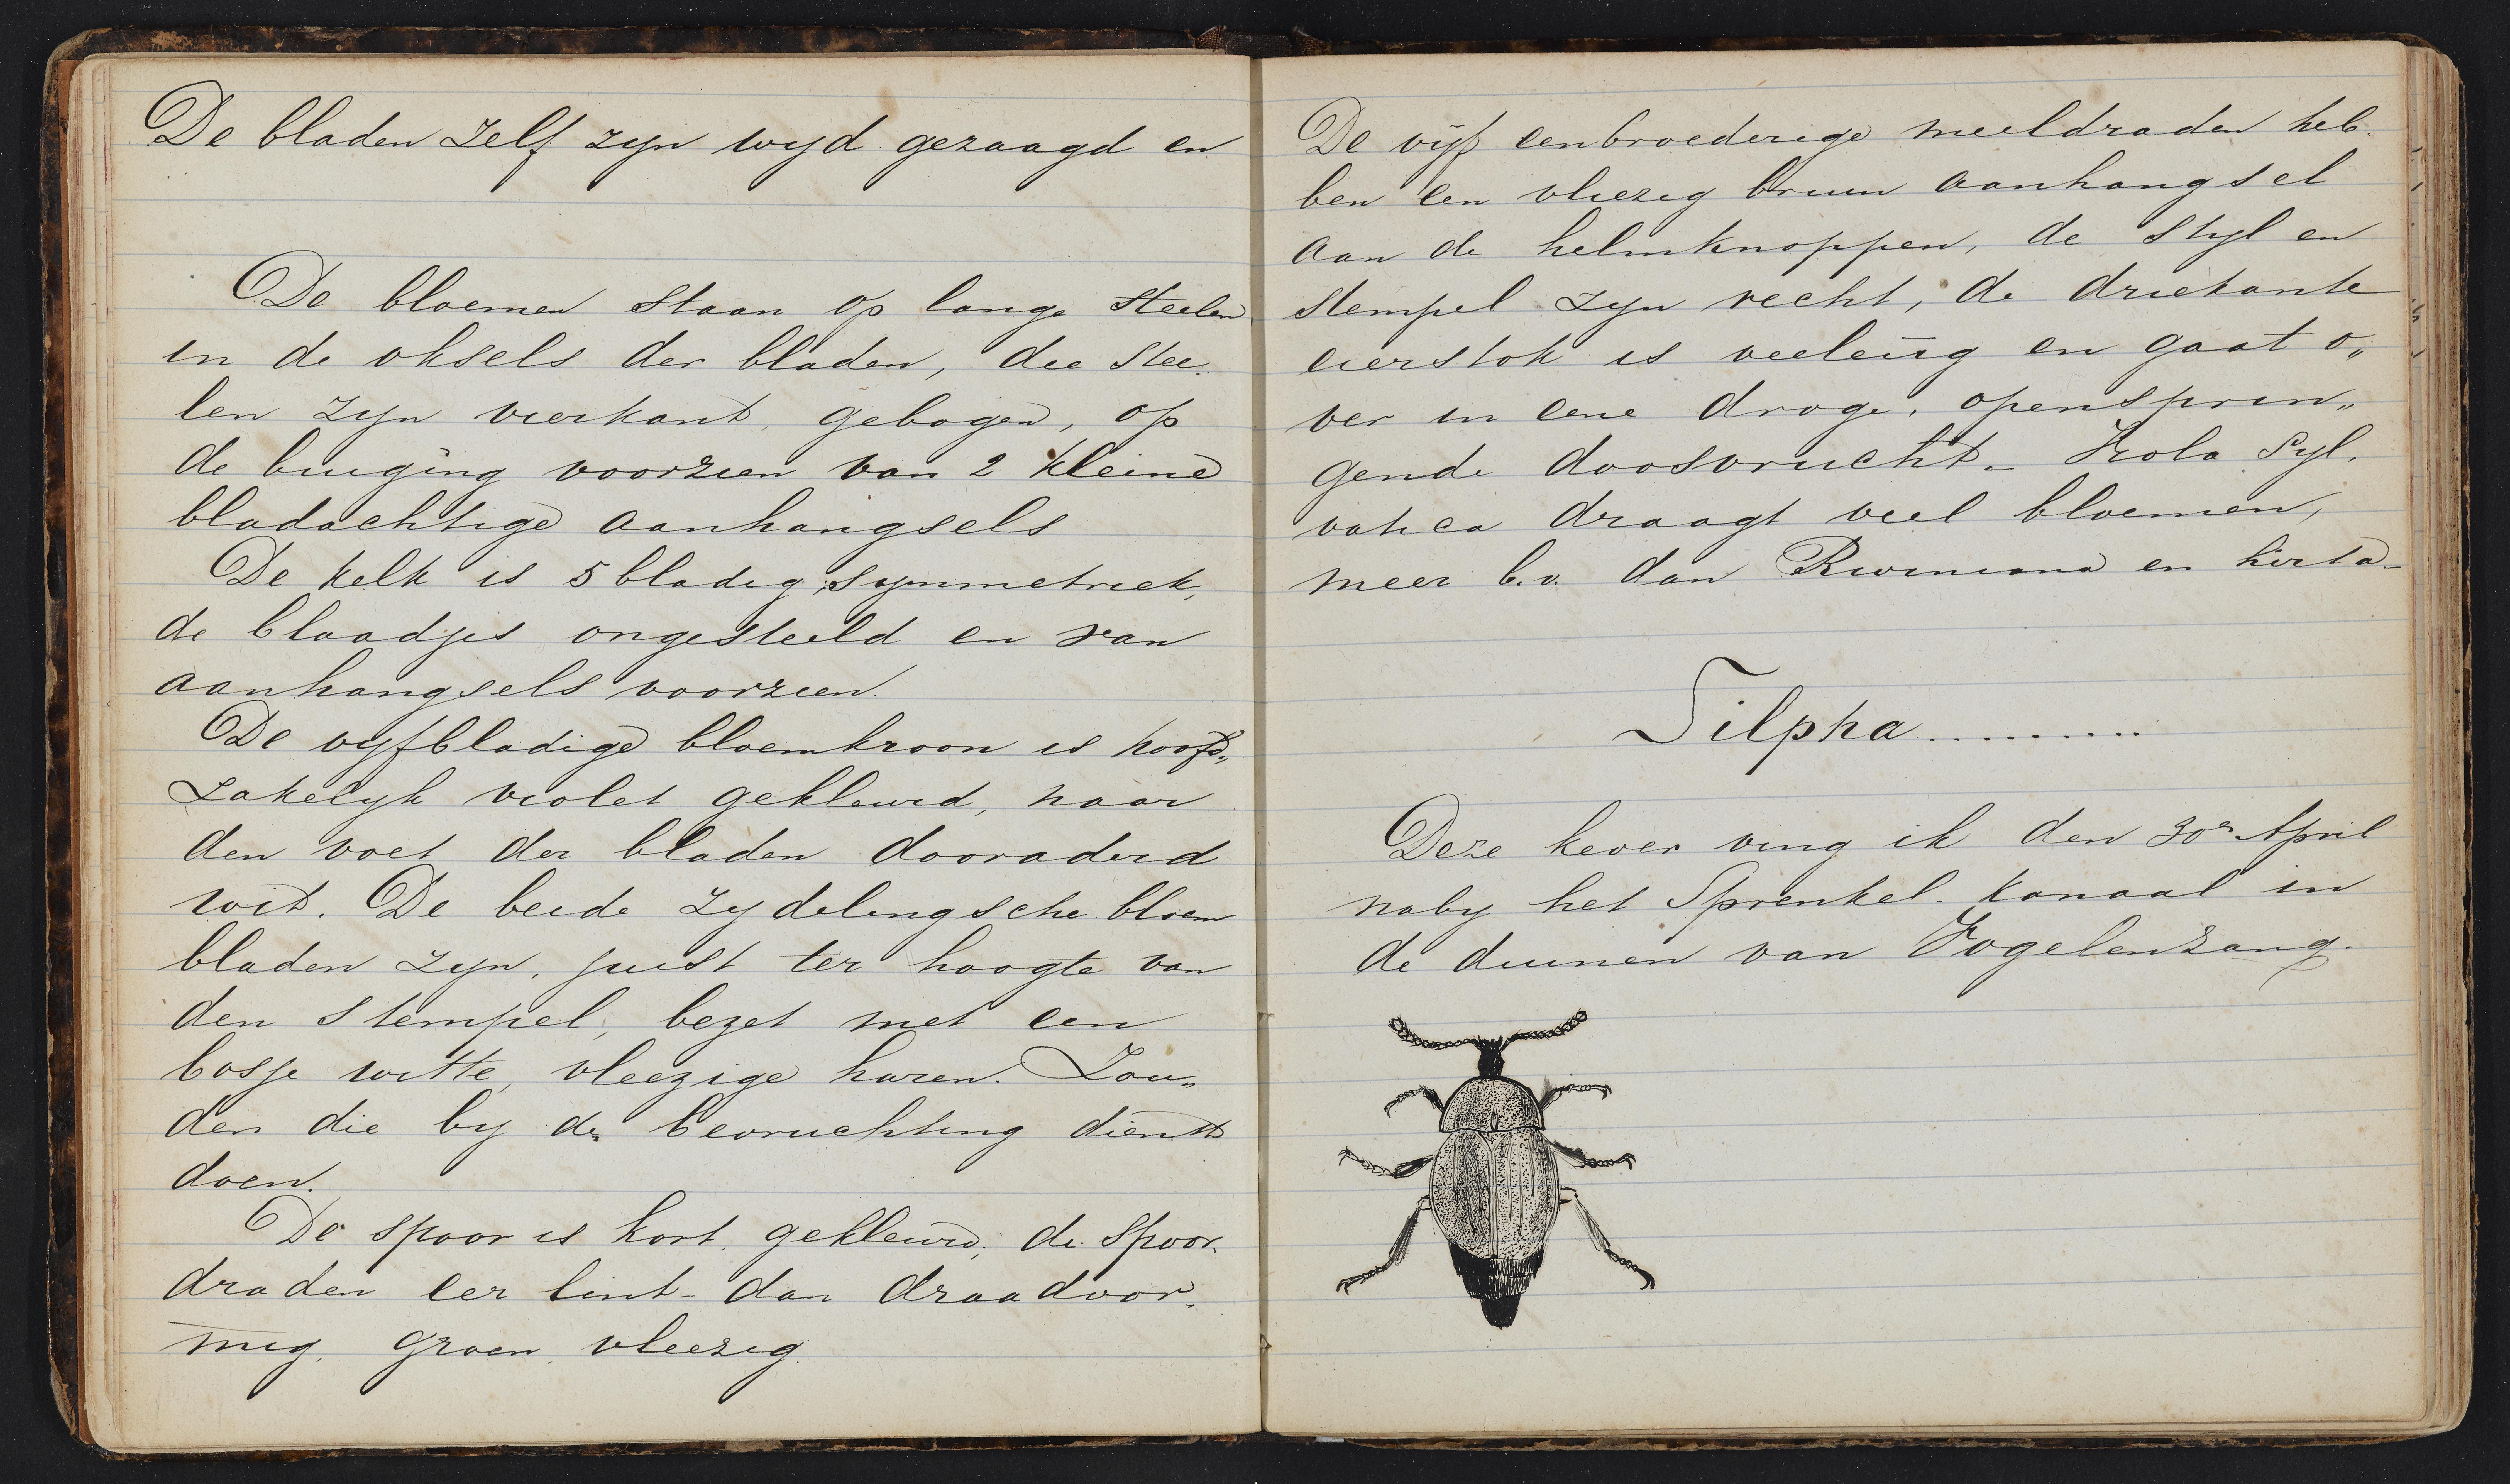 De bladen zelf zyn wyd gezaagd en
De bloemen staan op lange steelen
in de oksels der bladen, die stee„
len zyn vierkant, gebogen, op
de buiging voorzien van 2 kleine
bladachtige aanhangsels
De kelk is 5 bladig, symmetriek,
de blaadjes ongesteeld en van
aanhangsels voorzien.
De vyfbladige bloemkroon is hoofd„
zakelyk violet gekleurd, naar
den voet der bladen dooraderd
wit. De beide zydelingsche bloem
bladen zyn, juist ter hoogte van
den stempel, bezet met een
bosje witte, vleezige haren. Zou„
den die by de bevruchting dienst
doen.
De spoor is kort, gekleurd, de spoor„
draden eer lint- dan draadvor„
mig, groen, vleezig.
De vijf eenbroederige meeldraden heb„
ben een vliezig bruin aanhangsel
aan de helmknoppen, de styl en
stempel zyn recht, de driekante
eierstok is veeleiig en gaat o„
ver in eene droge, openspring„
gende doosvrucht. Viola Syl„
vatica draagt veel bloemen,
meer b.v. dan Riviniana en hirta.
Silpha..........
Deze kever ving ik den 30n April
naby het Sprenkel-kanaal in
de duinen van Vogelenzang.